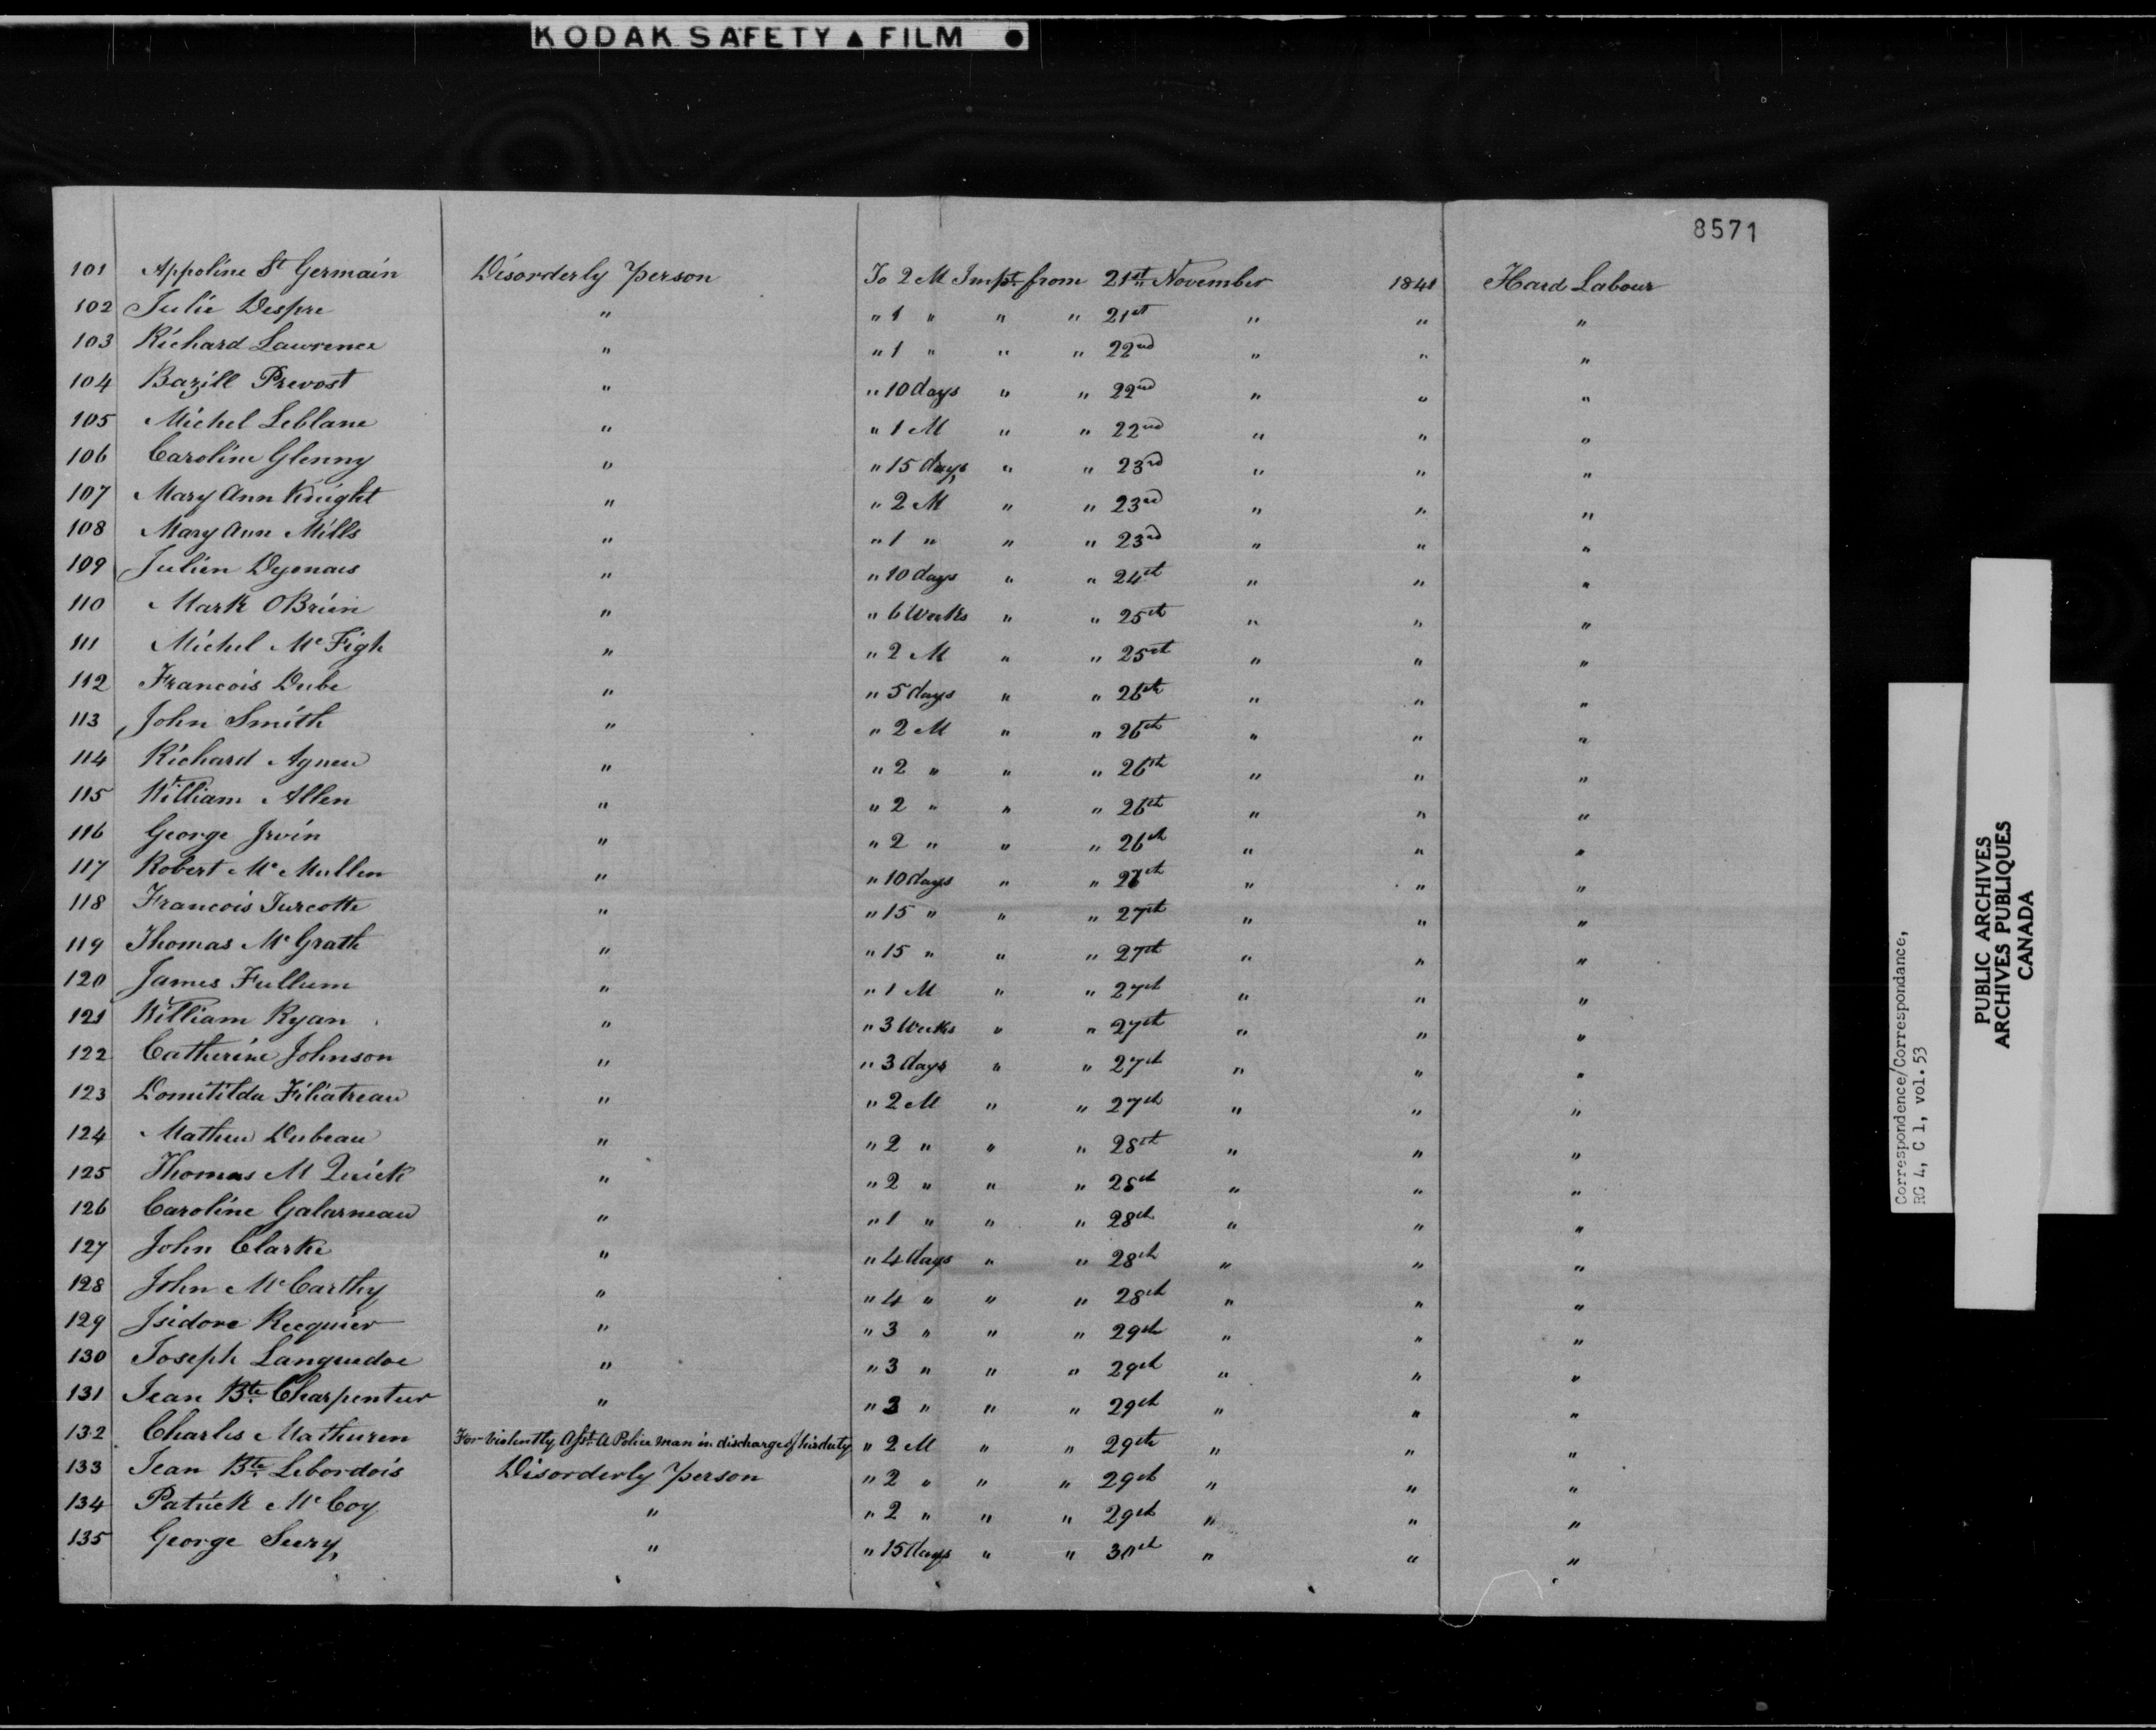 KODAK SAFETY ▲ FILM ●
8571
101 Appoline St Germain Disorderly person To 2 M Impt. from 21st November 1841 Hard Labour
102 Julie Despre " " 1 " " " 21st " " "
103 Richard Lawrence " " 1 " " " 22nd " " "
104 Bazill Prevost " " 10 days " " 22nd " " "
105 Michel Leblanc " " 1 M " " 22nd " " "
106 Caroline Glenny " " 15 days " " 23rd " " "
107 Mary Ann Knight " " 2 M " " 23rd " " "
108 Mary Ann Mills " " 1 " " " 23rd " " "
109 Julien Dyonais " " 10 days " " 24th " " "
110 Mark OBrien " " 6 Weeks " " 25th " " "
111 Michel Mc Figh " " 2 M " " 25th " " "
112 Francois Dube " " 5 days " " 26th " " "
113 John Smith " " 2 M " " 26th " " "
114 Richard Agnew " " 2 " " " 26th " " "
115 William Allen " " 2 " " " 26th " " "
116 George Irvin " " 2 " " " 26th " " "
117 Robert Mc Mullen " " 10 days " " 27th " " "
118 Francois Turcotte " " 15 " " " 27th " " "
119 Thomas Mc Grath " " 15 " " " 27th " " "
120 James Fullum " " 1 M " " 27th " " "
121 William Ryan " " 3 Weeks " " 27th " " "
122 Catherine Johnson " " 3 days " " 27th " " "
123 Domitilda Filiatreau " " 2 M " " 27th " " "
124 Mathew Dubeau " " 2 " " " 28th " " "
125 Thomas M Quick " " 2 " " " 28th " " "
126 Caroline Galarneau " " 1 " " " 28th " " "
127 John Clarke " " 4 days " " 28th " " "
128 John Mc Carthy " " 4 " " " 28th " " "
129 Isidore Recquier " " 3 " " " 29th " " "
130 Joseph Languedoc " " 3 " " " 29th " " "
131 Jean Bte. Charpentier " " 3 " " " 29th " " "
132 Charles Mathuren For violently Asst. A Police man in discharge of his duty " 2 M " " 29th " " "
133 Jean Bte. Lebordois Disorderly person " 2 " " " 29th " " "
134 Patrick Mc Coy " " 2 " " " 29th " " "
135 George Seery " " 15 days " " 30th " " "
Correspondence/Correspondance,
RG 4, C 1, vol. 53
PUBLIC ARCHIVES
ARCHIVES PUBLIQUES
CANADA